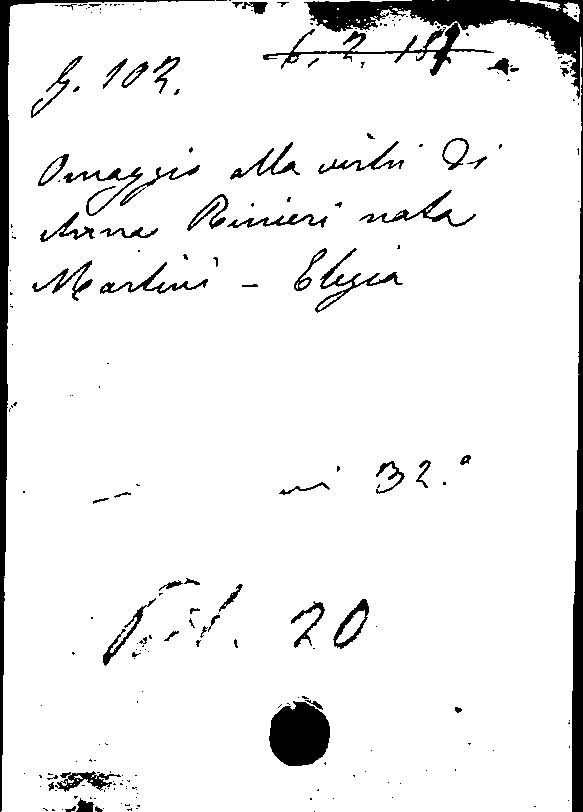 G. 102. 6. 2. 157
Omaggio alla virtù di
Anna Rinieri nata
Martini - Elegia
— in 32.°
20